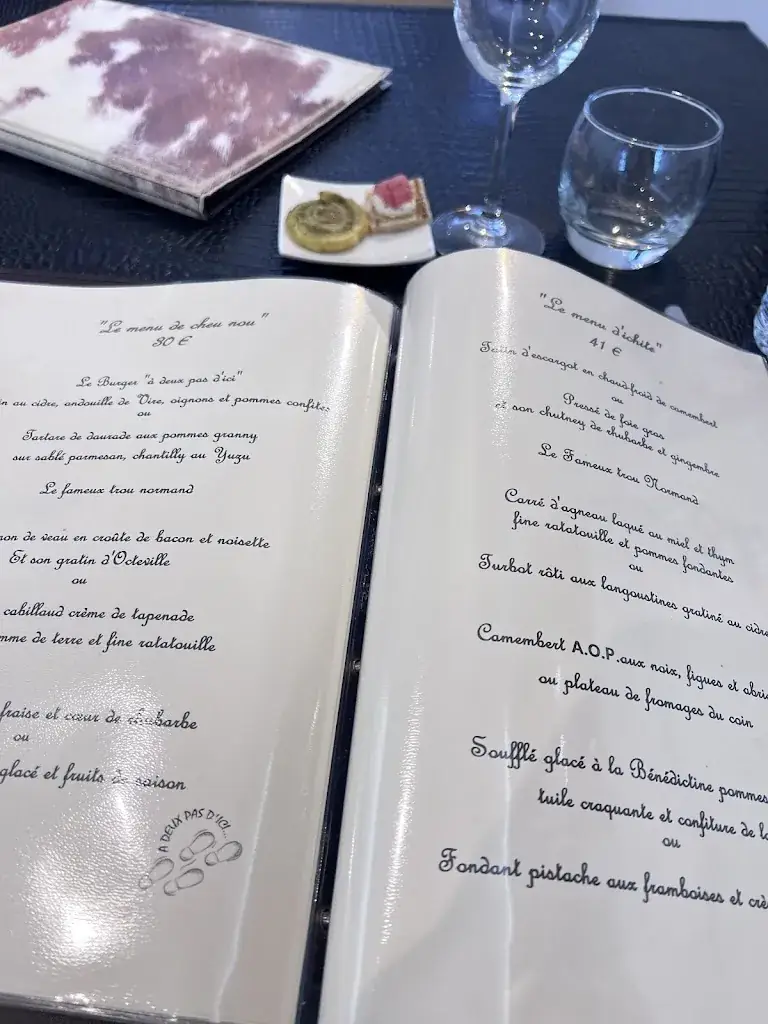 "Le menu de cheu nou"
30 €
Le Burger "à deux pas d'ici"
au cidre, andouille de Vire, oignons et pommes confites
ou
Tartare de daurade aux pommes granny
sur sablé parmesan, chantilly au Yuzu
Le fameux trou normand
de veau en croûte de bacon et noisette
Et son gratin d'Octeville
ou
cabillaud crème de tapenade
de terre et fine ratatouille
fraise et cœur de rhubarbe
ou
glacé et fruits de saison
A DEUX PAS D'ICI...
"Le menu d'ichite"
41 €
Tatin d'escargot en chaud froid de camembert
ou
Pressé de foie gras
et son chutney de rhubarbe et gingembre
Le Fameux trou Normand
Carré d'agneau laqué au miel et thym
fine ratatouille et pommes fondantes
ou
Turbot rôti aux langoustines gratiné au cidre
Camembert A.O.P. aux noix, figues et
ou plateau de fromages du coin
Soufflé glacé à la Bénédictine pommes
tuile craquante et confiture de
ou
Fondant pistache aux framboises et